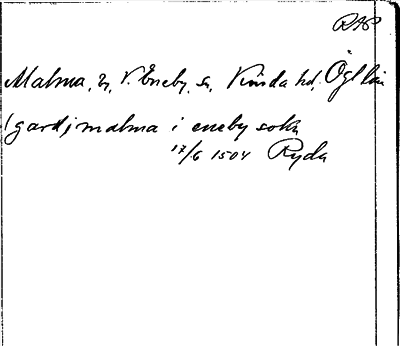 RAP
Malma, by, V. Eneby, sn, Kinda hd, Ögl län
1 gard j malma i eneby sokn
17/6 1504 Ryda